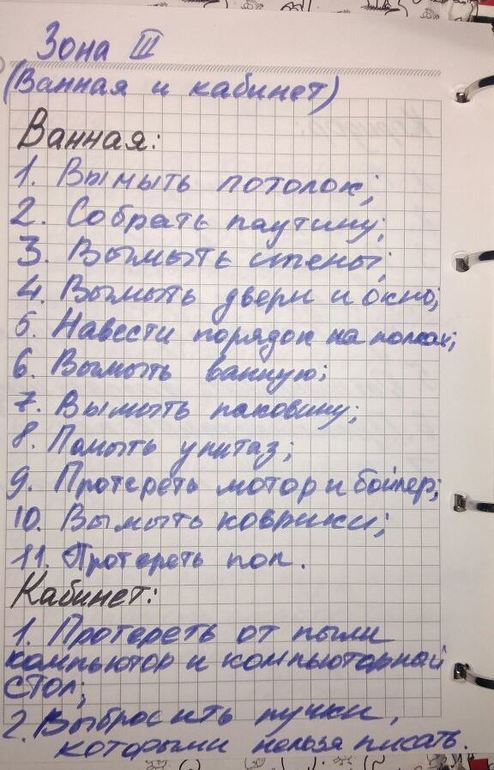 Зона III
(Ванная и кабинет)
Ванная:
1. Вымыть потолок;
2. Собрать паутину;
3. Вымыть стены;
4. Вымыть двери и окно;
5. Навести порядок на полках;
6. Вымыть ванную;
7. Вымыть раковину;
8. Помыть унитаз;
9. Протереть мотор и бойлер;
10. Вымыть коврики;
11. Протереть пол.
Кабинет:
1. Протереть от пыли
компьютор и компьюторный
стол;
2. Выбросить ручки,
которыми нельзя писать.